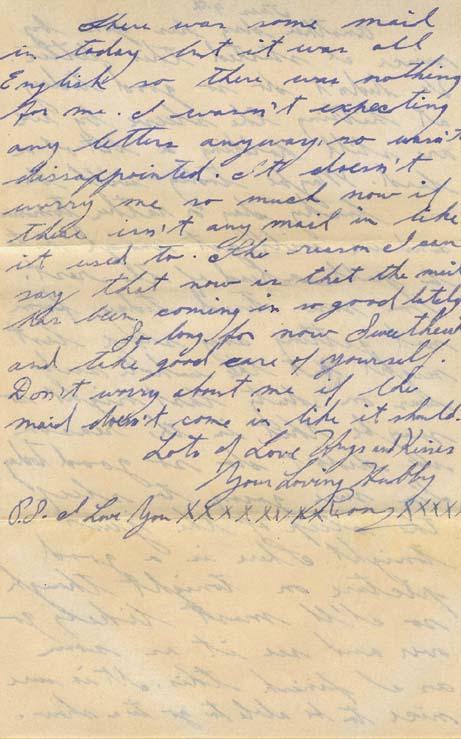 There was some mail
in today but it was all
English so there was nothing
for me. I wasn't expecting
any letters anyway, so wasn't
dissappointed. It doesn't
worry me so much now if
there isn't any mail in like
it used to. The reason I can
say that now is that the mail
has been coming in so good lately
So long for now Sweetheart
and take good care of yourself.
Don't worry about me if the
maid doesn't come in like it should.
Lots of Love Hugs and Kisses
Your Loving Hubby
P.S. I Love You XXXXXXXX XXXX